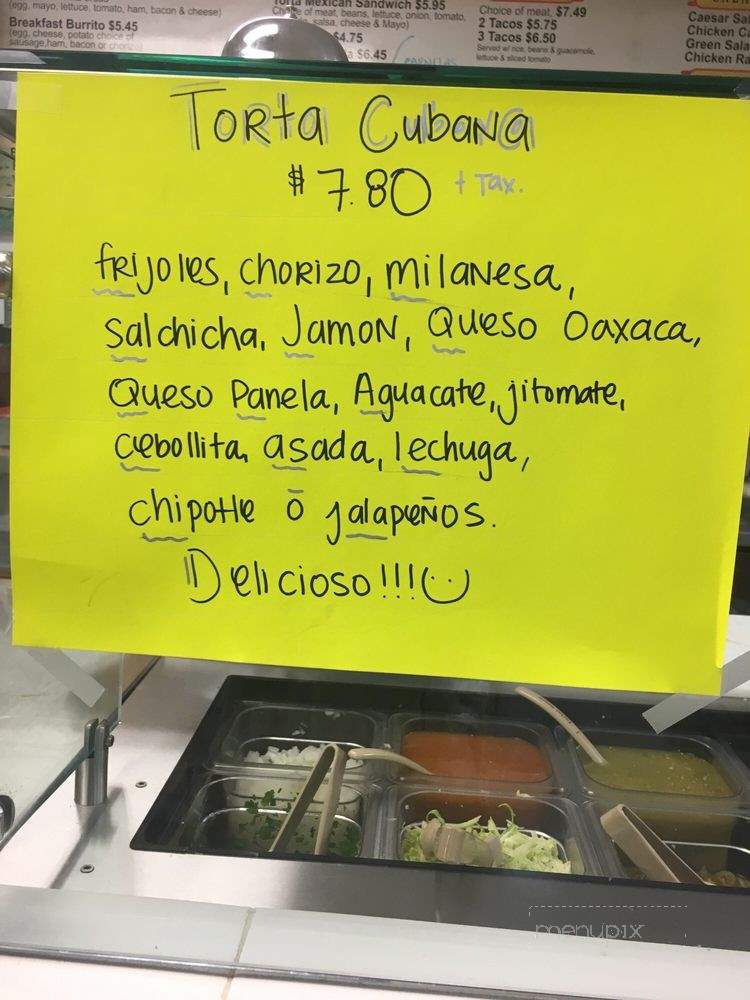 (egg, mayo, lettuce, tomato, ham, bacon & cheese)
Breakfast Burrito $5.45
(egg, cheese, potato choice of
sausage, ham, bacon or chorizo
Torta Mexican Sandwich $5.95
Choice of meat, beans, lettuce, onion, tomato,
salsa, cheese & Mayo)
$4.75
$6.45
CARNITAS
Choice of meat, $7.49
2 Tacos $5.75
3 Tacos $6.50
Served w/ rice, beans & guacamole,
lettuce & sliced tomato
Caesar Sa
Chicken C
Green Sala
Chicken Ra
Torta Cubana
$7.80 + Tax.
frijoles, chorizo, milanesa,
salchicha, Jamon, Queso Oaxaca,
Queso Panela, Aguacate, jitomate,
cebollita, asada, lechuga,
chipotle ō jalapeños.
Delicioso!!!
menupix